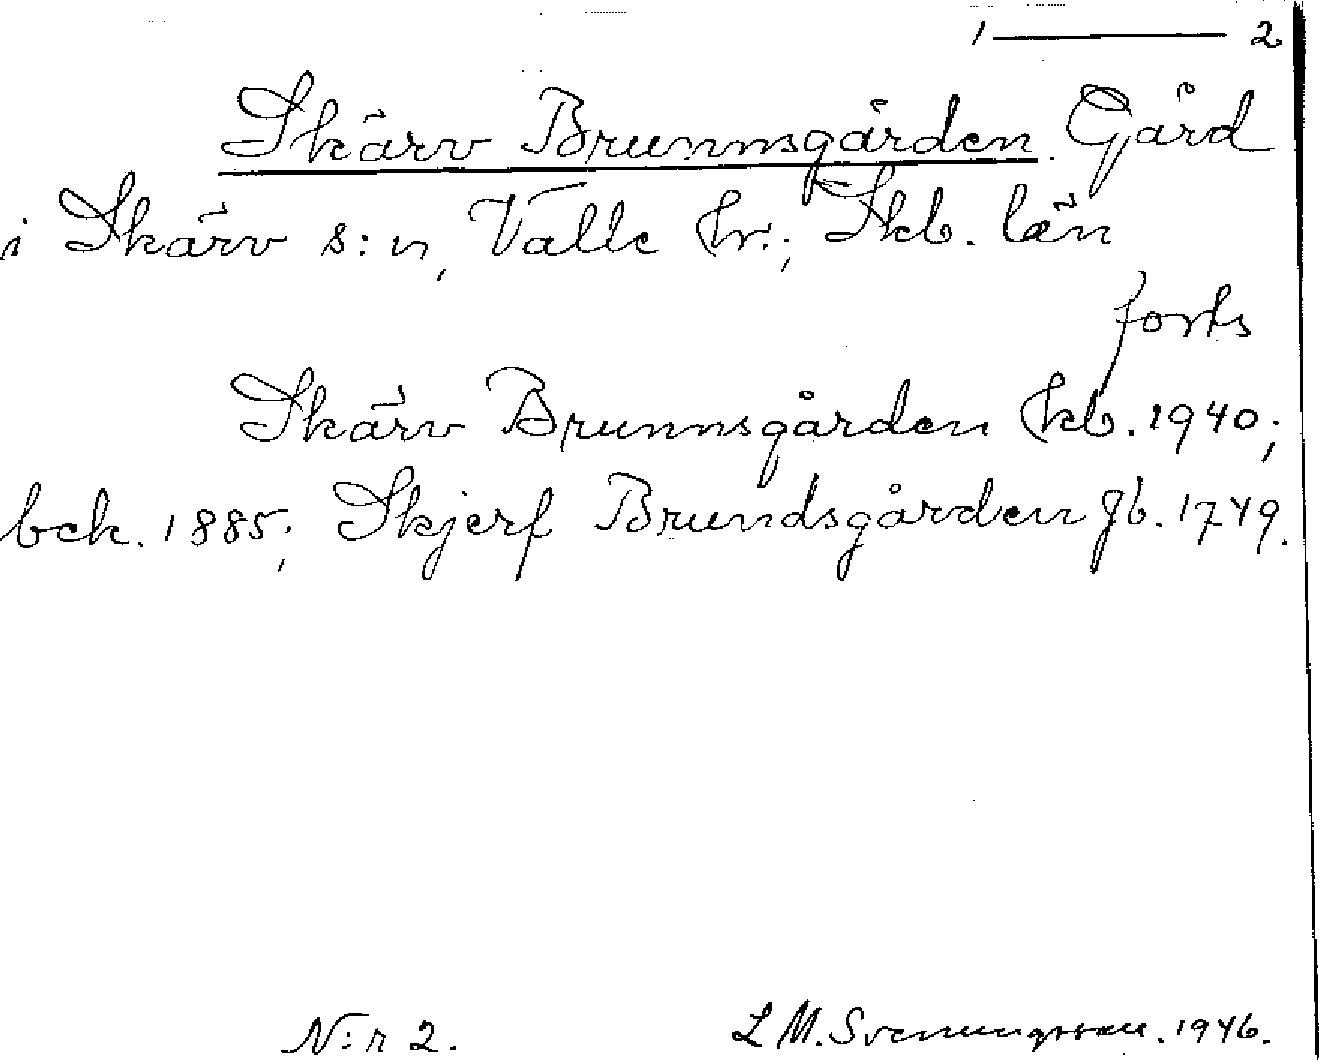 1 — 2
Skärv Brunnsgården. Gård
i Skärv s:n, Valle hr.; Skb. län
forts
Skärv Brunnsgården kb. 1940;
bek. 1885; Skjerf Brundsgården Jb. 1749.
N:r 2. L M. Svenungsson. 1946.